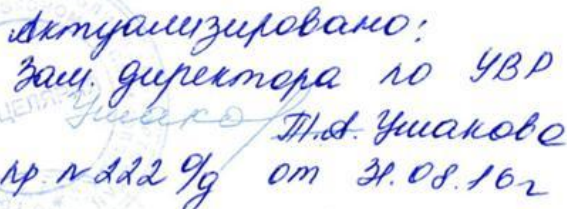 Актуализировано:
Зам. директора по УВР
Т.А. Ушакова
пр. № 222 о/д от 31.08.16г